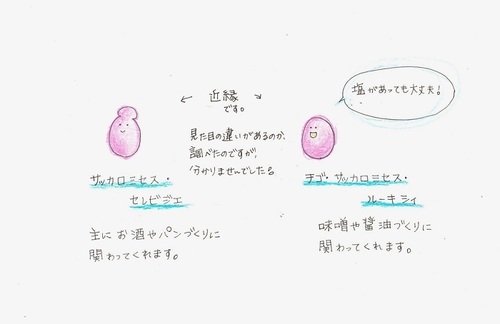 ← 近縁 →
です。
塩があっても大丈夫!
見た目の違いがあるのか、
調べたのですが、
分かりませんでした。
サッカロミセス・
セレビジエ
主にお酒やパンづくりに
関わってくれます。
チゴ・サッカロミセス・
ルーキシイ
味噌や醤油づくりに
関わってくれます。